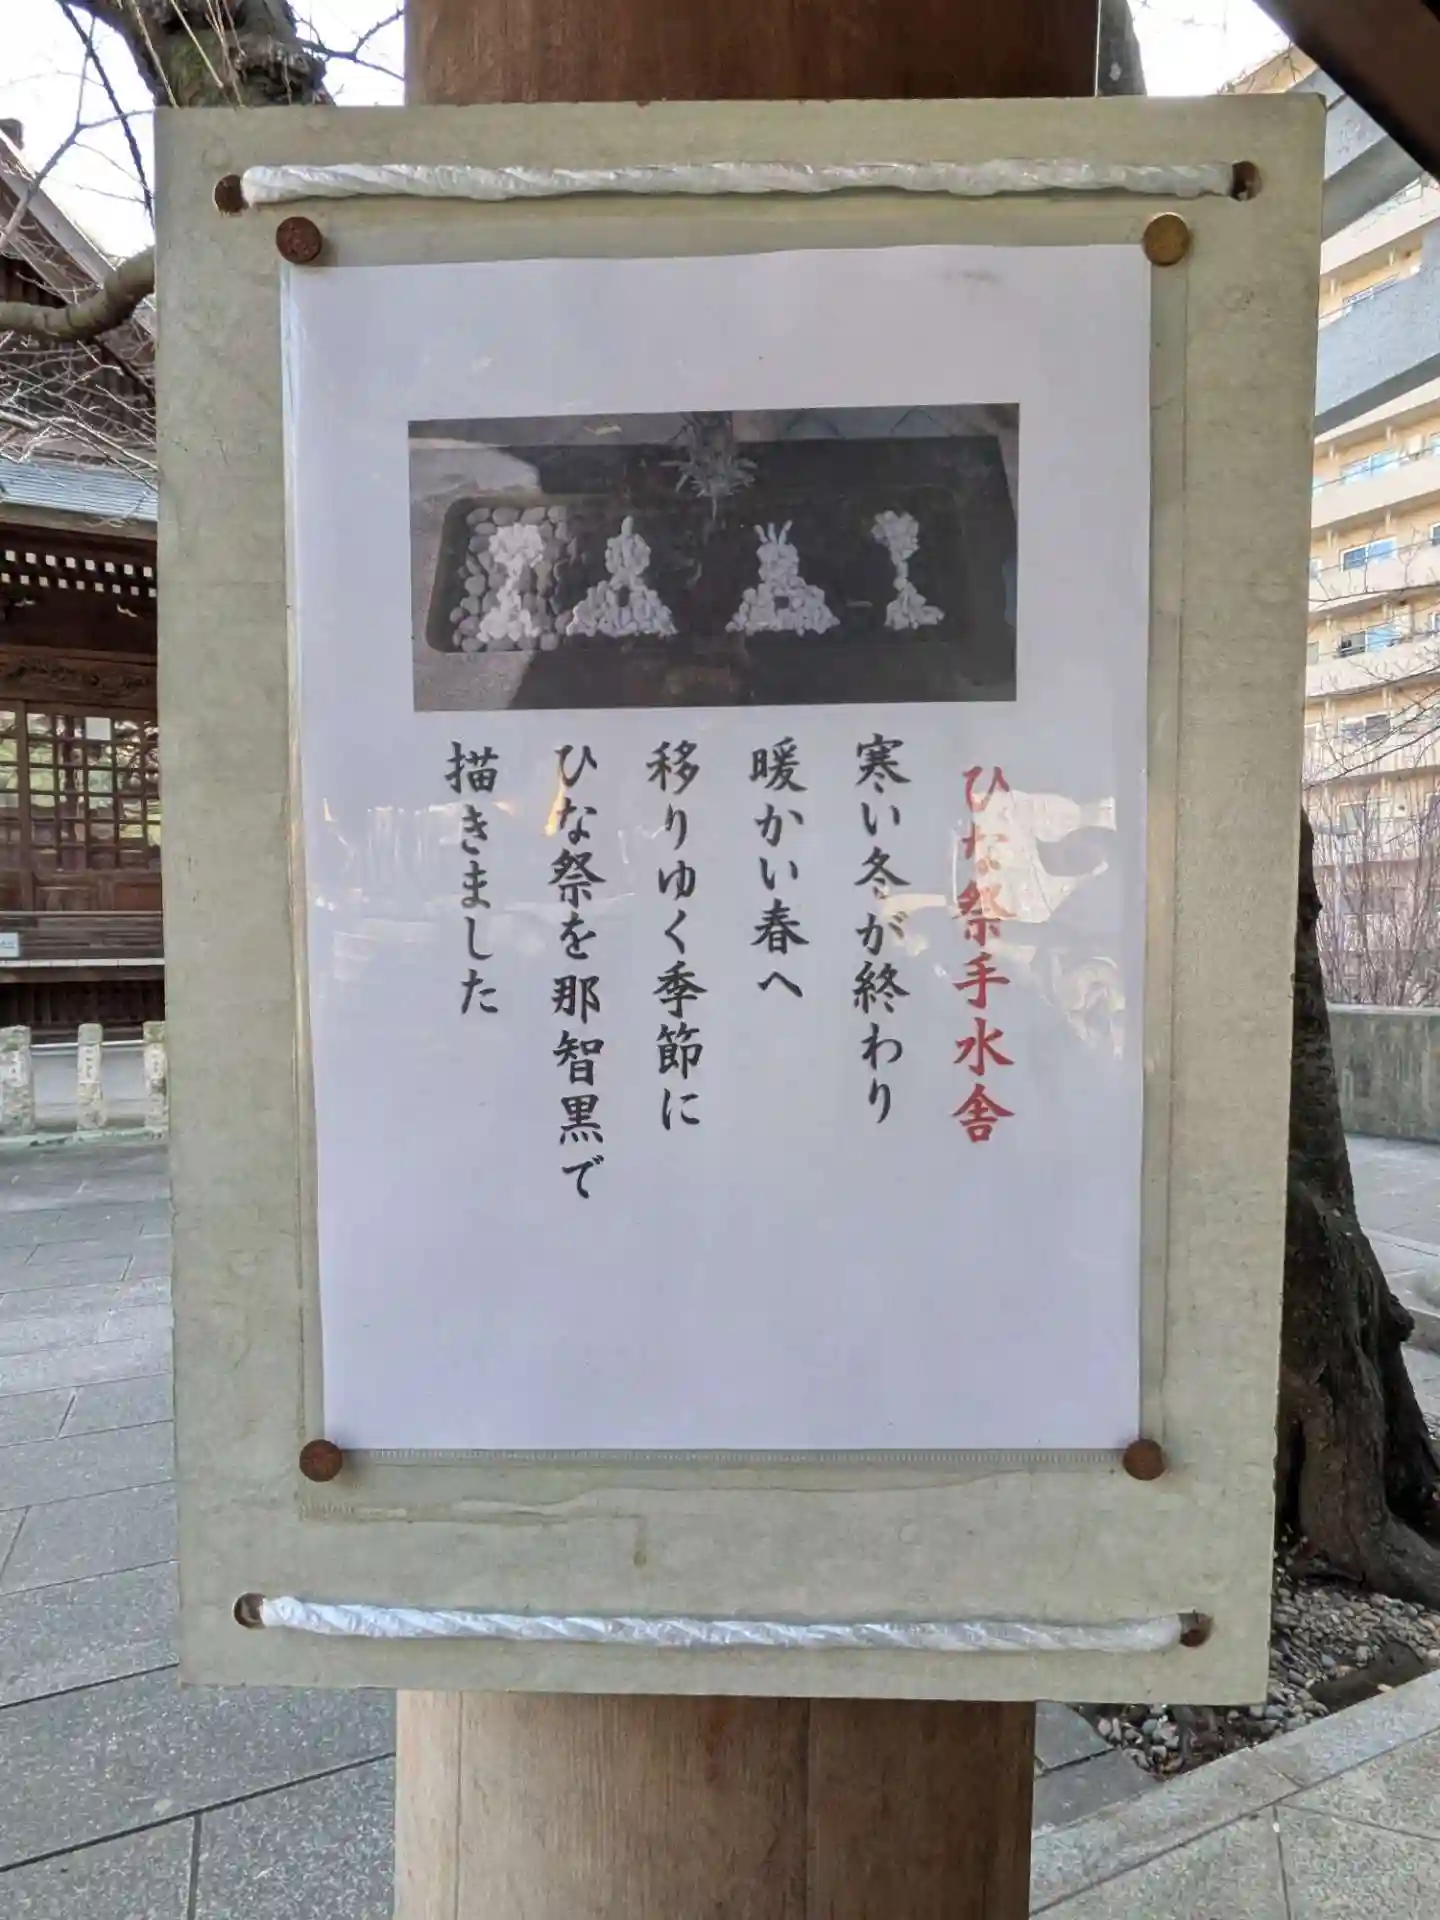 ひな祭手水舎
寒い冬が終わり
暖かい春へ
移りゆく季節に
ひな祭を那智黒で
描きました